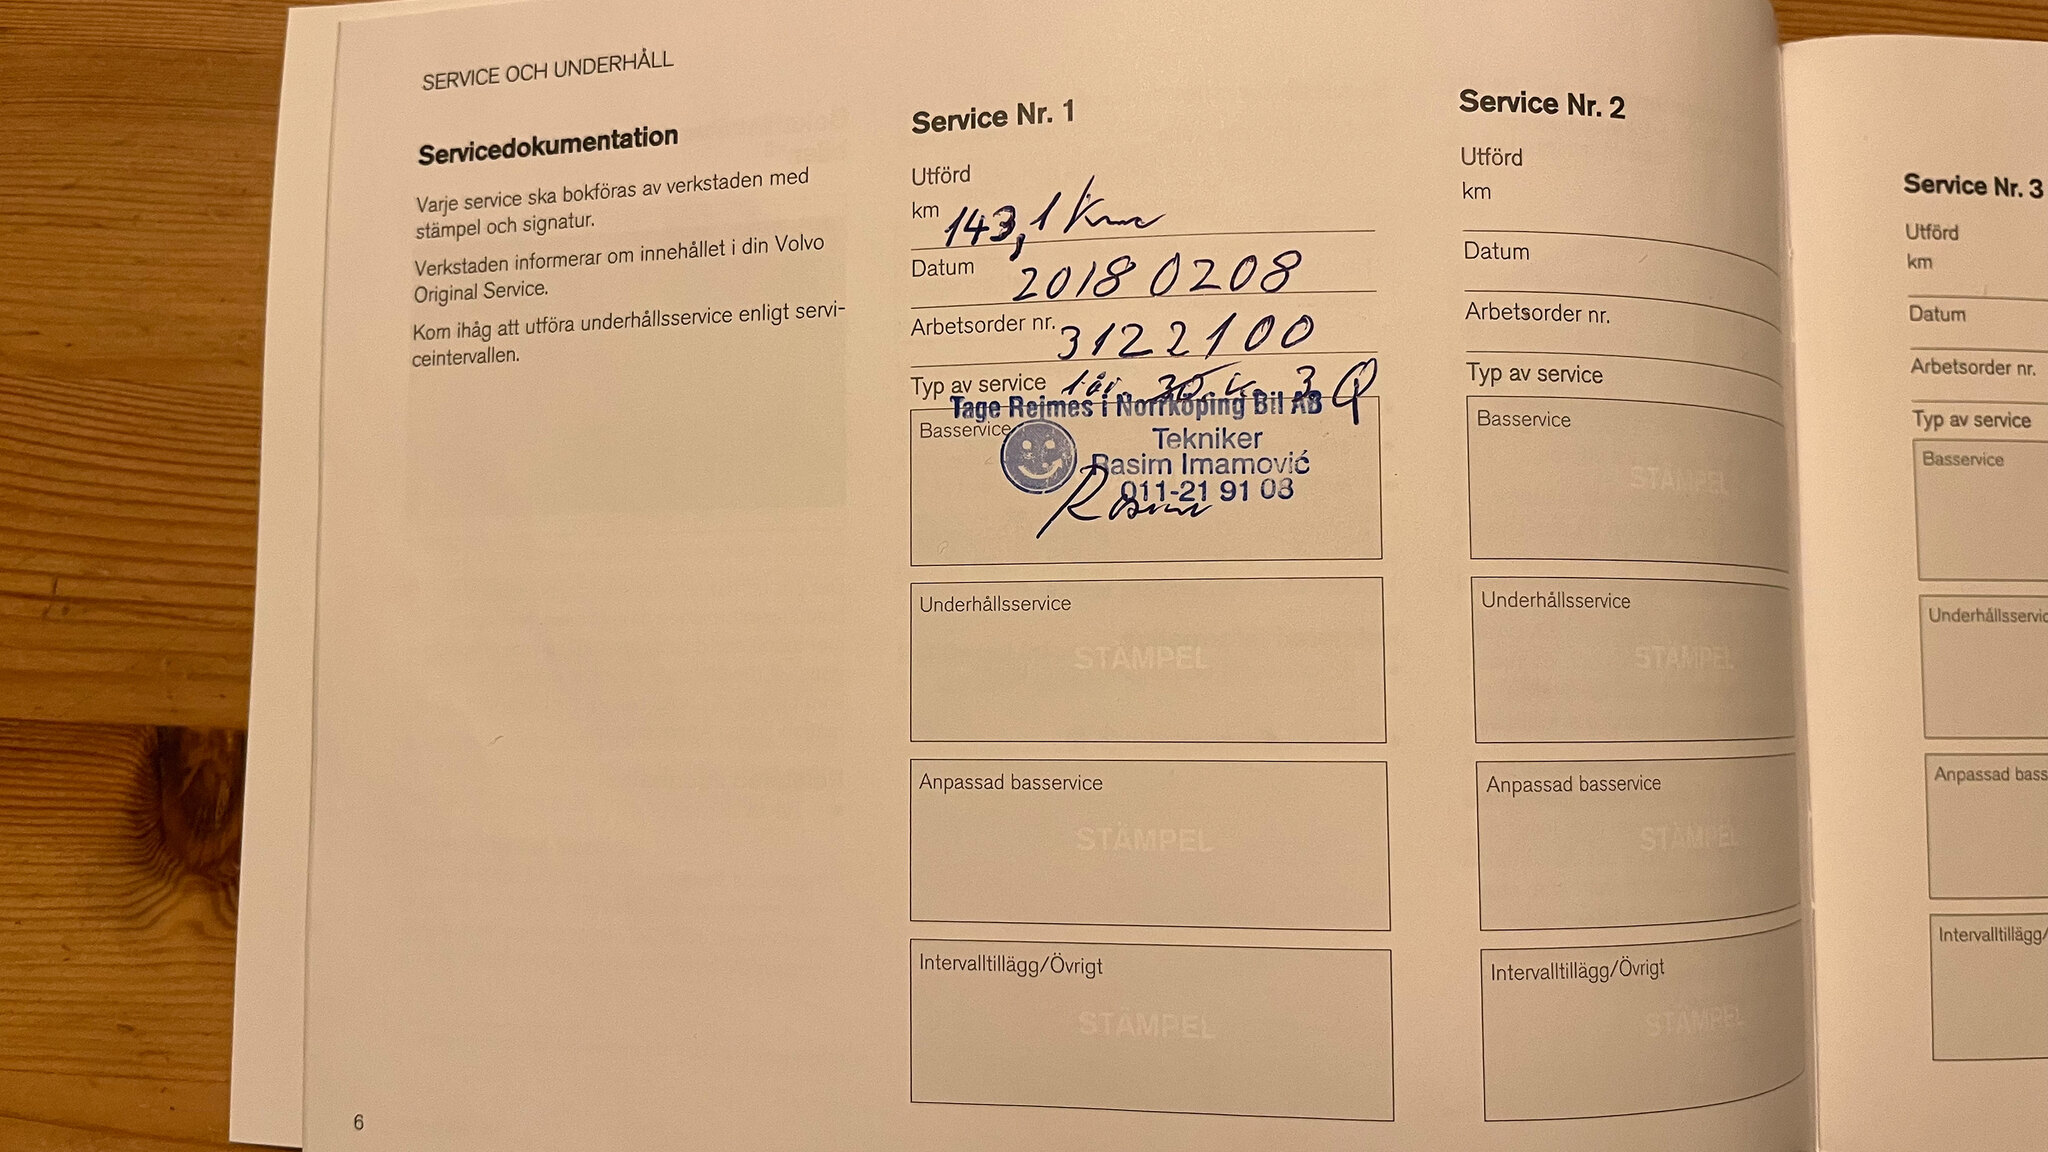 SERVICE OCH UNDERHÅLL
Servicedokumentation
Varje service ska bokföras av verkstaden med
stämpel och signatur.
Verkstaden informerar om innehållet i din Volvo
Original Service.
Kom ihåg att utföra underhållsservice enligt servi-
ceintervallen.
6
Service Nr. 1
Utförd
km 143,1 km
Datum 2018 02 08
Arbetsorder nr. 3122100
Typ av service 1 år
Tage Rejmes i Norrköping Bil AB
Basservice
Tekniker
Rasim Imamović
011-21 91 08
Rasim
Underhållsservice
STÄMPEL
Anpassad basservice
STÄMPEL
Intervalltillägg/Övrigt
STÄMPEL
Service Nr. 2
Utförd
km
Datum
Arbetsorder nr.
Typ av service
Basservice
STÄMPEL
Underhållsservice
STÄMPEL
Anpassad basservice
STÄMPEL
Intervalltillägg/Övrigt
STÄMPEL
Service Nr. 3
Utförd
km
Datum
Arbetsorder nr.
Typ av service
Basservice
Underhållsservic
Anpassad bass
Intervalltillägg/